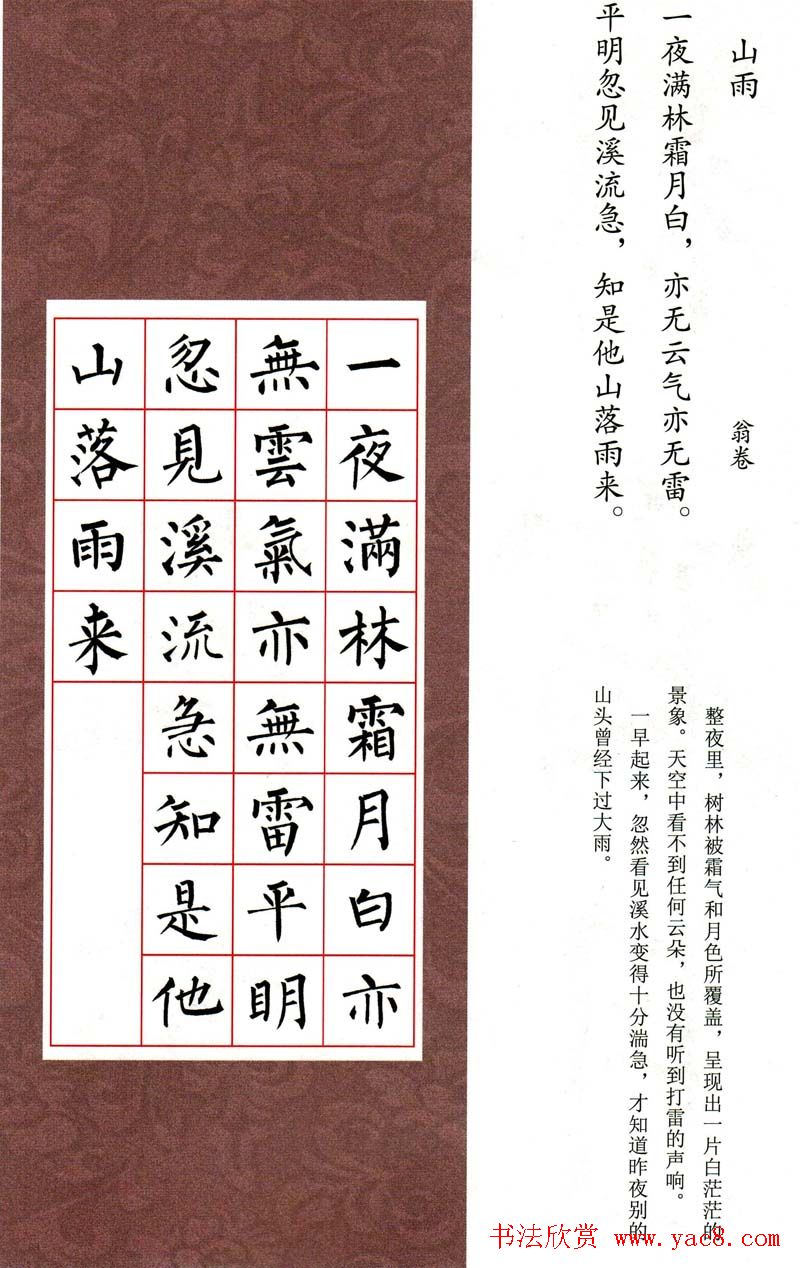 山雨
翁卷
一夜满林霜月白，亦无云气亦无雷。
平明忽见溪流急，知是他山落雨来。
整夜里，树林被霜气和月色所覆盖，呈现出一片白茫茫的
景象。天空中看不到任何云朵，也没有听到打雷的声响。
一早起来，忽然看见溪水变得十分湍急，才知道昨夜别的
山头曾经下过大雨。
一夜滿林霜月白亦
無雲氣亦無雷平明
忽見溪流急知是他
山落雨来
书法欣赏 www.yac8.com